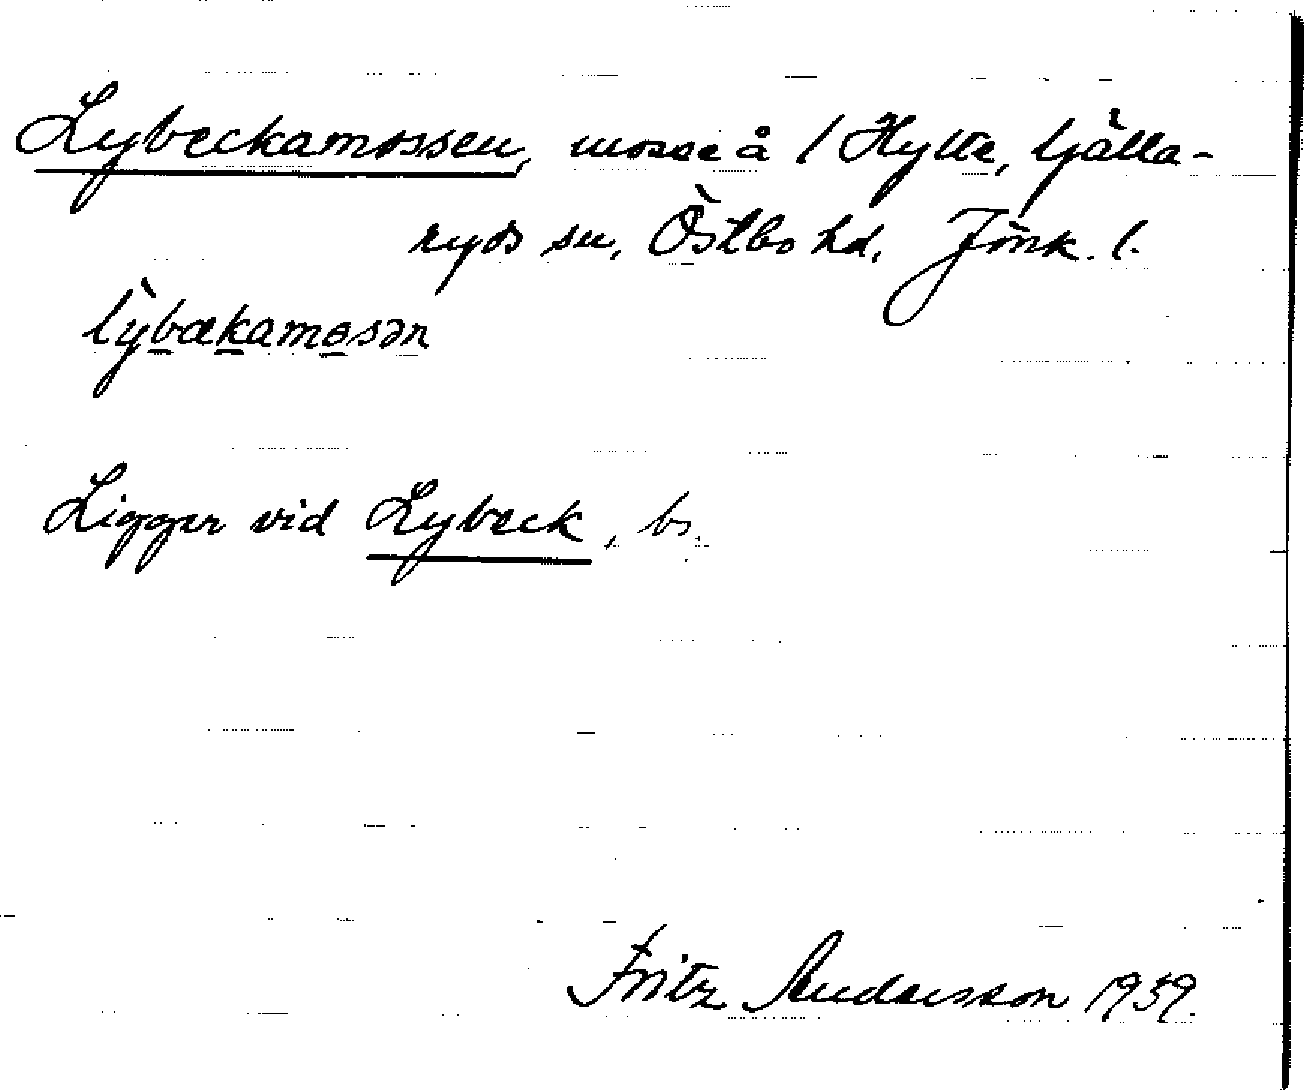 Lybeckamossen, mosse å 1 Hylte, Ljälla-
ryds sn, Östbo hd, Jönk. l.
lỳbækamosən
Ligger vid Lybeck, bs.
Fritz Andersson 1939.